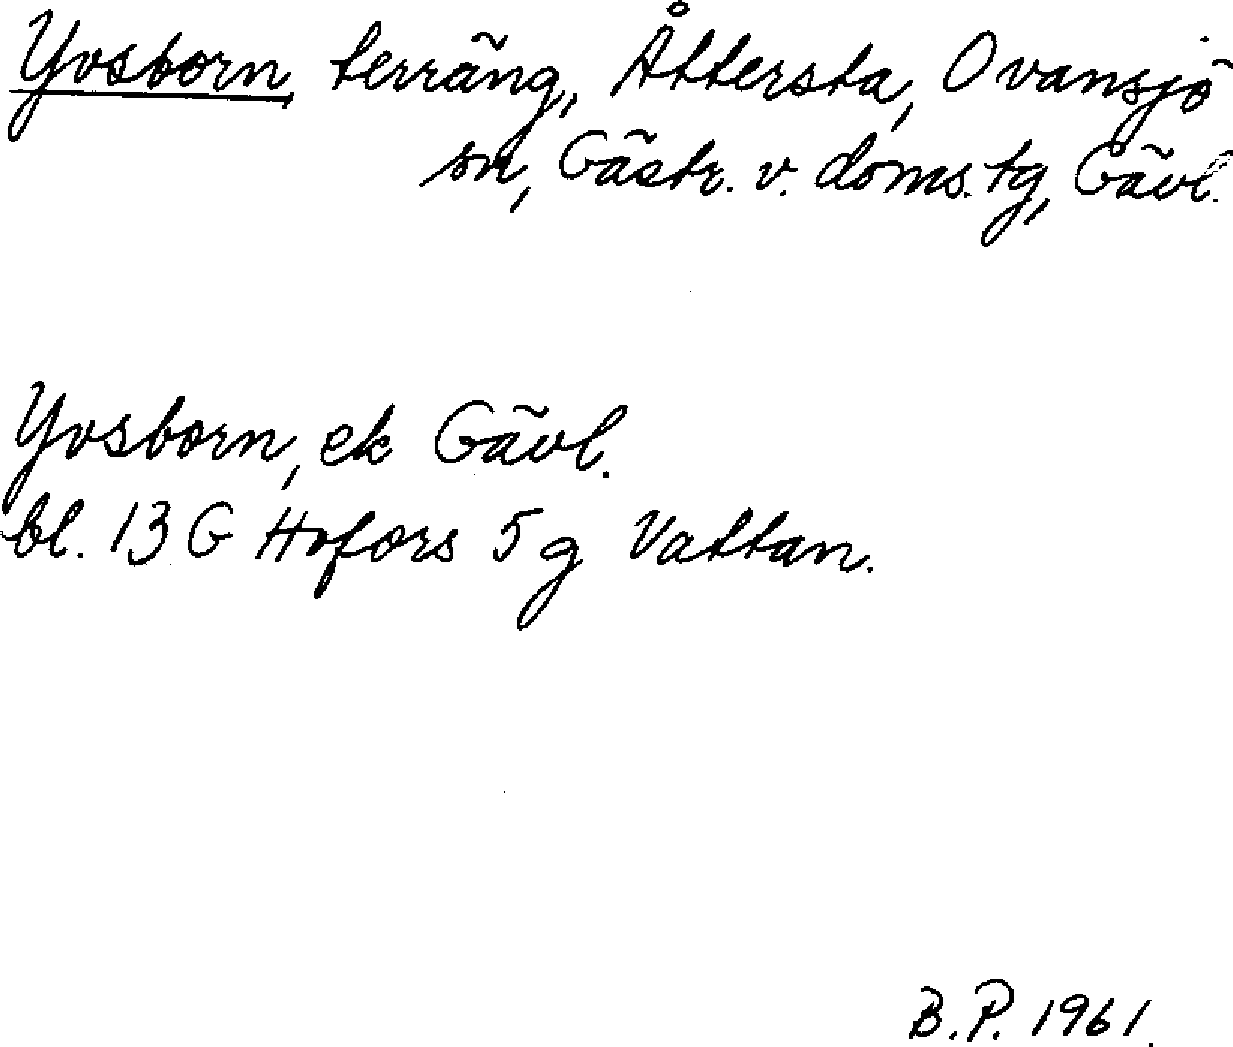 Yvsborn, terräng, Åttersta, Ovansjö
sn, Gästr. v. doms. tg, Gävl.
Yvsborn, ek Gävl.
bl. 13 G Hofors 5 g Vattan.
B.P. 1961.